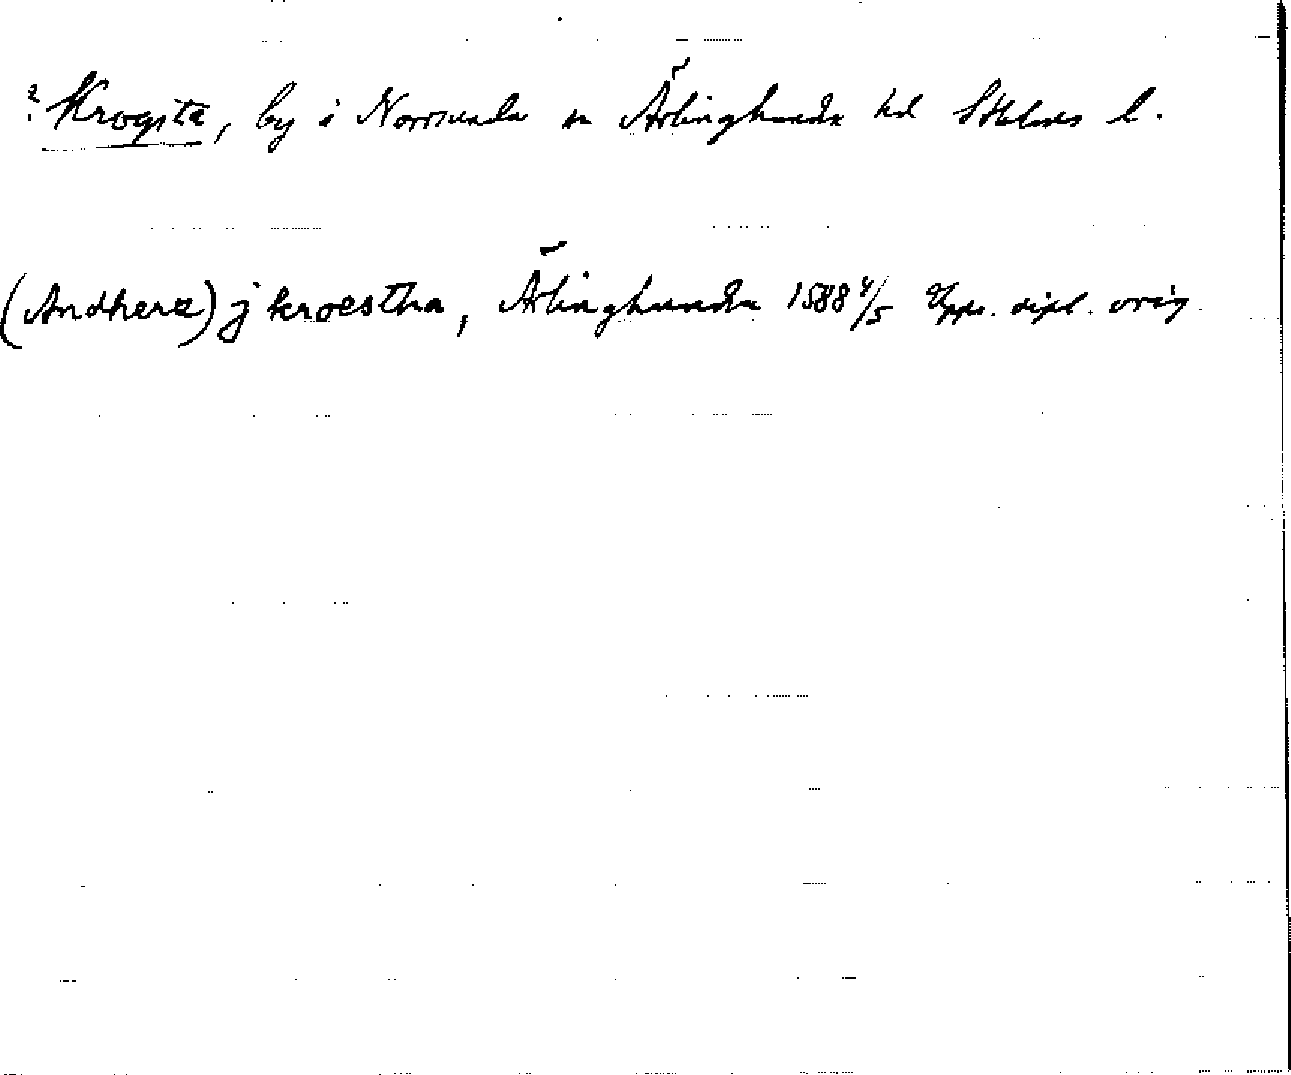 ? Krogsta, by i Norrsunda sn Ärlinghundra hd Sthlms l.
(Andhers) j kroestha, Ärlinghundra 1588 4/5 Upps. dipl. orig